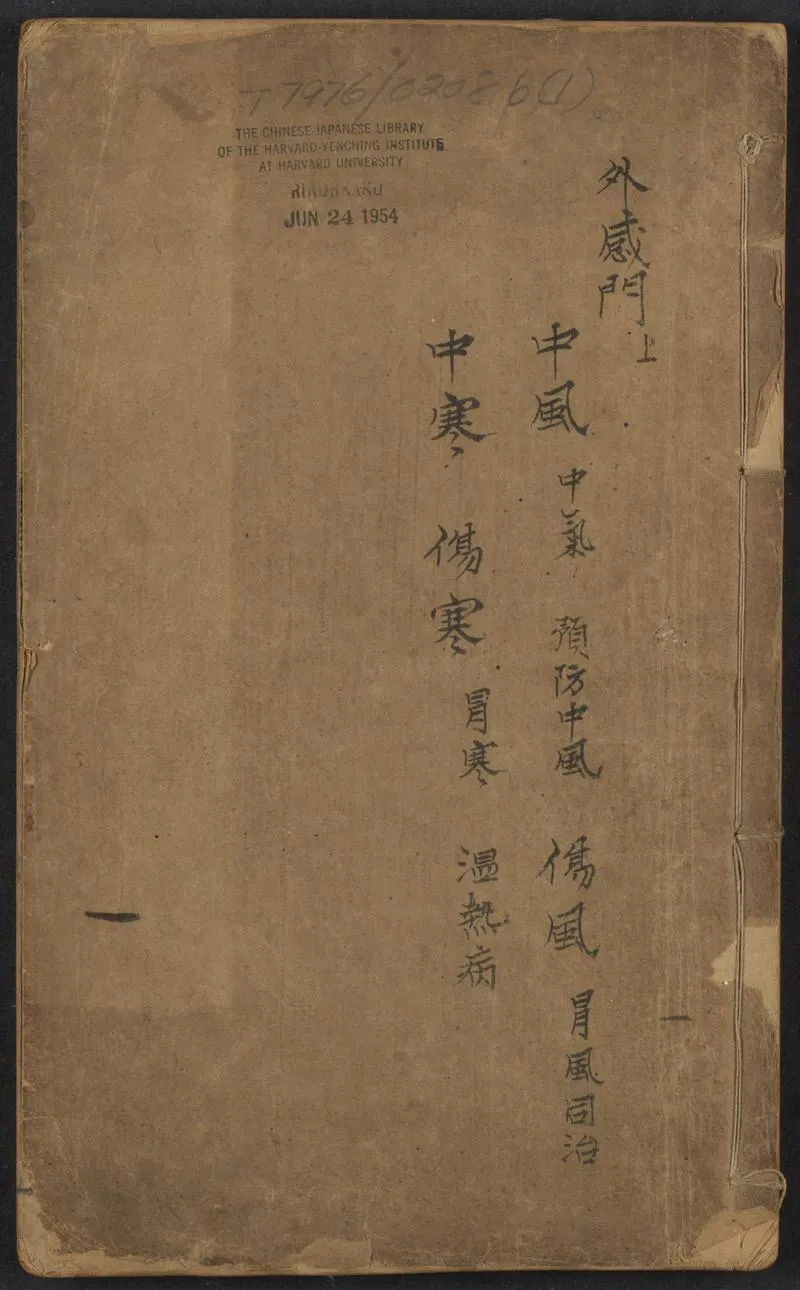 T 7976/0208b(1)
THE CHINESE-JAPANESE LIBRARY
OF THE HARVARD-YENCHING INSTITUTE
AT HARVARD UNIVERSITY
JUN 24 1954
外感門上
中風 中氣 預防中風 傷風 冒風同治
中寒 傷寒 冒寒 溫熱病
一
一